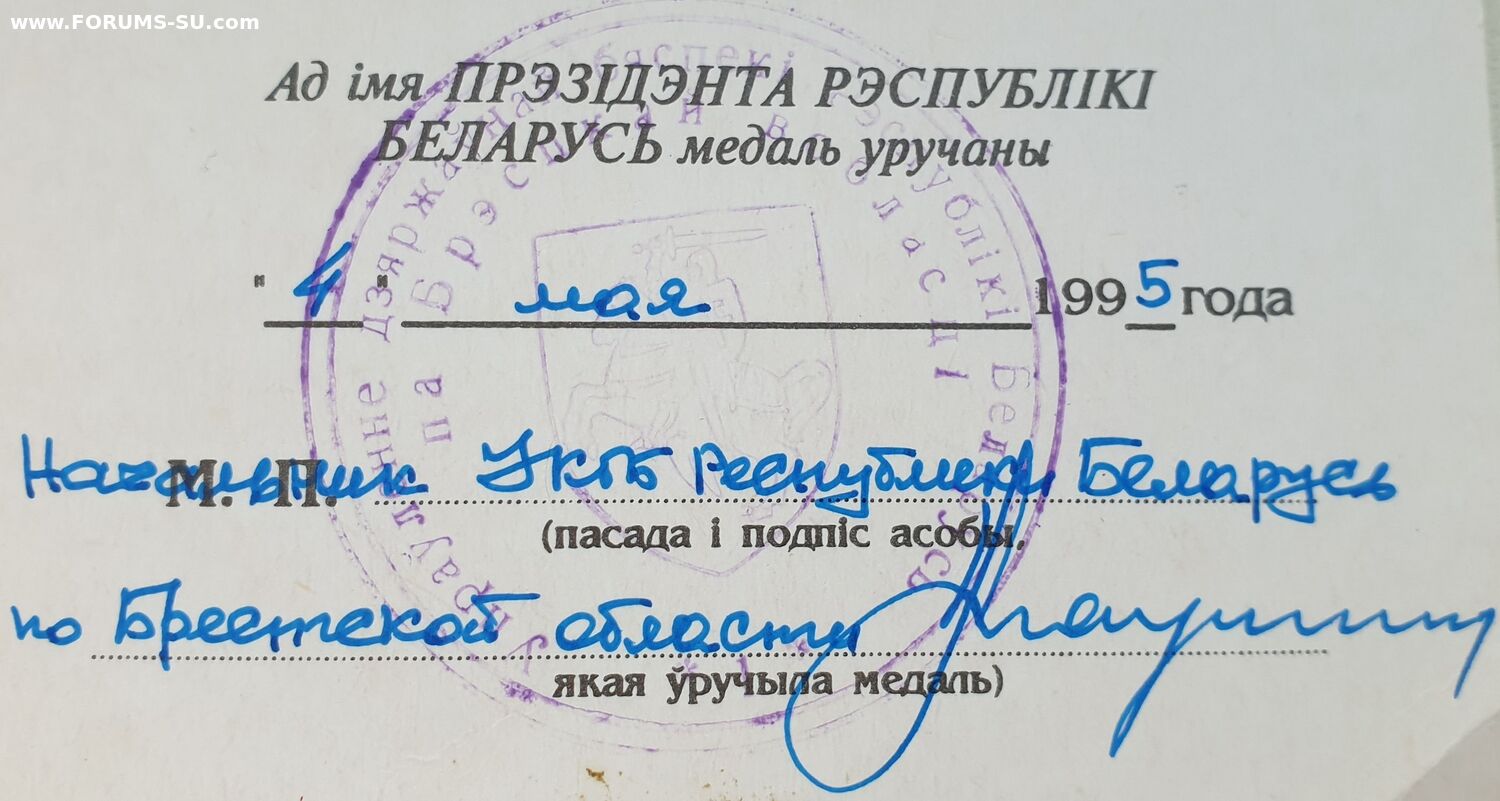 www.FORUMS-SU.com
Ад імя ПРЭЗІДЭНТА РЭСПУБЛІКІ
БЕЛАРУСЬ медаль уручаны
" 4 " мая 1995 года
М. П. Начальник УКГБ Республики Беларусь
(пасада і подпіс асобы,
по Брестской области
якая ўручыла медаль)
ўпраўленне дзяржаўнай бяспекі Рэспублікі Беларусь
па Брэсцкай вобласці